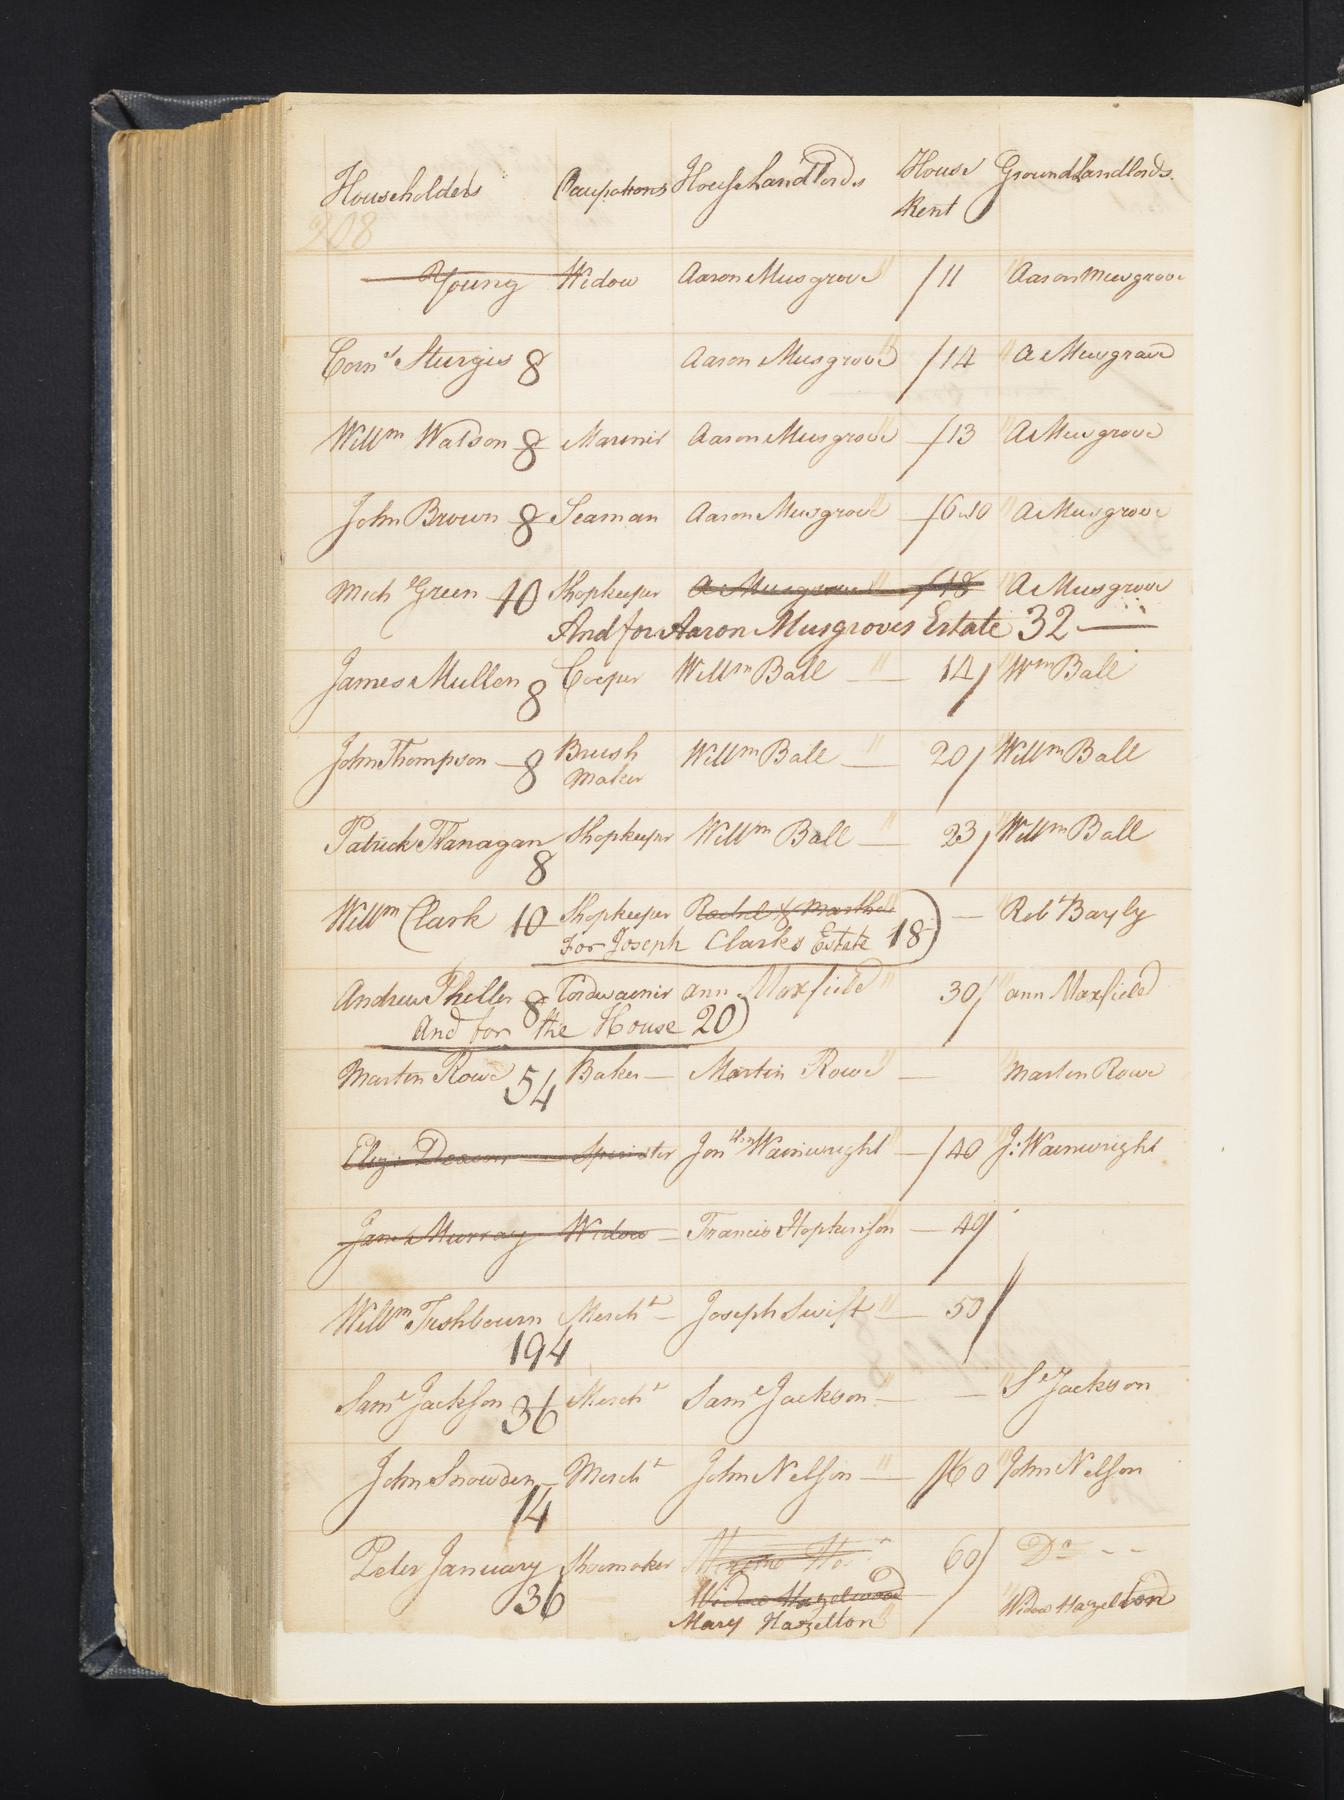 Householders Occupations House Landlords House Rent Ground Landlords
208
Young Widow Aaron Musgrove " / 11 " Aaron Musgrove
Corns Sturgis 8 Aaron Musgrove " / 14 " A Musgrave
Willm Watson 8 Marinir Aaron Musgrove " / 13 " A Musgrove
John Brown 8 Seaman Aaron Musgrove " / 6.10 " A Musgrove
Mich Green 10 Shopkeeper A Musgrove " / 18 " A Musgrove
And for Aaron Musgroves Estate 32 —
James Mullen 8 Cooper Willm Ball " 14 / " Wm Ball
John Thompson 8 Brush Maker Willm Ball " 20 / " Willm Ball
Patrick Flanagan 8 Shopkeeper Willm Ball " 23 / " Willm Ball
Willm Clark 10 Shopkeeper Rachel & Martha " — " Robt Bayly
For Joseph Clarks Estate 18
Andrew Pheller 8 Cordwaenir ann Maxfield " 30 / " ann Maxfield
And for the House 20
Martin Rowe 54 Baker — Martin Rowe " — " Martin Rowe
Eliz: Deacon — Spinster Jonthn Wainwright " — / 40 " J: Wainwright
Jane Murray Widow — Francis Hopkinson — 40 /
Willm Tishbourn 194 Mercht — Joseph Swift " — 50 /
Saml Jackson 36 Mercht Saml Jackson " — — " Sl Jackson
John Snowden 14 Mercht John Nelson " — / 60 " John Nelson
Peter January 36 Shoemaker 60 / Do - -
Widow Hazelwood " Widow Hazelton
Mary Hazelton "